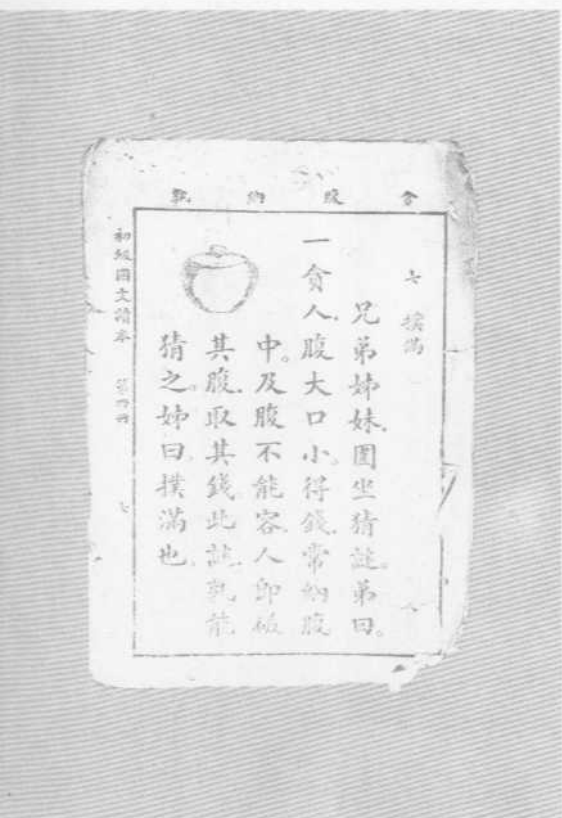 容 腹 納 孰
七 撲滿
兄弟姊妹。圍坐猜謎。弟曰。
一貪人。腹大口小。得錢。常納腹
中。及腹不能容。人卽破
其腹。取其錢。此謎。孰能
猜之。姊曰。撲滿也。
初級國文讀本 第四冊 七